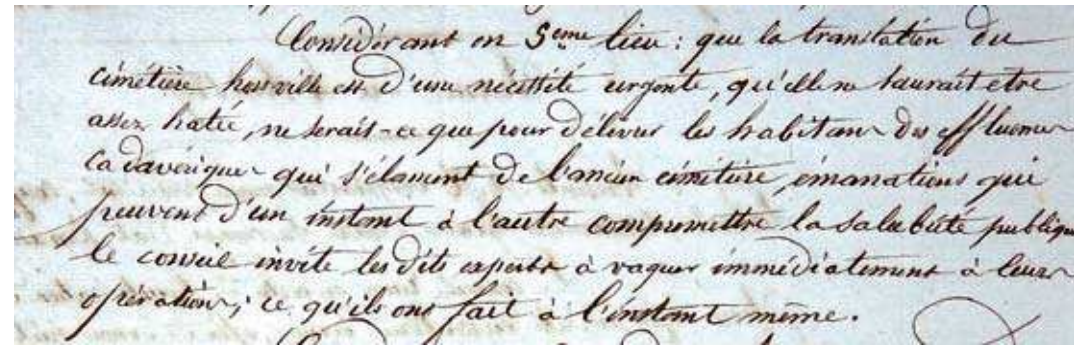 Considérant en 5eme lieu : que la translation du
cimetière hors ville est d'une nécessité urgente, qu'elle ne saurait etre
assez hatée, ne serait-ce que pour délivrer les habitans des effluences
cadavériques qui s'élancent de l'ancien cimetière, émanations qui
peuvent d'un instant à l'autre compromettre la salubrité publique
le conseil invite les dits experts à vaquer immédiatement à leurs
opérations ; ce qu'ils ont fait à l'instant même.